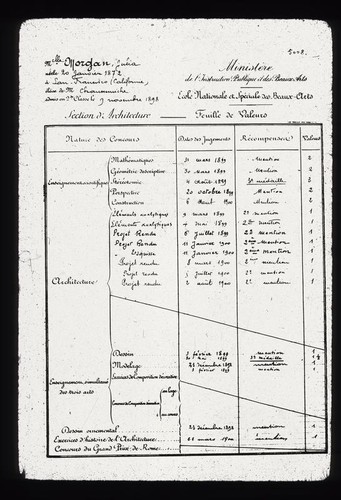 5008.
Mlle Morgan, Julia
née le 20 Janvier 1872
à San Francisco (Californie)
élève de M. Chaussemiche
Admis en 2e Classe le 9 novembre 1898
Ministère
de l'Instruction Publique et des Beaux-Arts
Ecole Nationale et Spéciale des Beaux-Arts
Section d'Architecture — Feuille de Valeurs
Nature des Concours Dates des Jugements Récompenses Valeurs
Enseignement scientifique
Mathématiques 31 mars 1899 Mention 2
Géométrie descriptive 30 mars 1899 Mention 2
Stéréotomie 4 août 1899 3e médaille 3
Perspective 20 octobre 1899 Mention 2
Construction 6 août 1900 Mention 2
Architecture
Eléments analytiques 9 mars 1899 2e mention 1
Eléments analytiques 4 mai 1899 2de mention 1
Projet Rendu 6 juillet 1899 2e mention 1
Projet Rendu 11 Janvier 1900 2ème Mention 1
Esquisse 11 Janvier 1900 2ème mention
Projet rendu 8 mars 1900 2e mention 1
Projet rendu 5 juillet 1900 2e mention 1
Projet rendu 2 août 1900 2e mention 1
Enseignement simultané des trois arts
Dessin 2 février 1899 mention 1
mai 1899 3e médaille
Modelage 28 décembre 1898 mention 1
février 1899 mention
Exercices de Composition décorative
Concours de Composition décorative
en loge
au cours
Dessin ornemental 28 décembre 1898 mention 1
Exercices d'histoire de l'Architecture 21 mars 1900 mention 1
Concours du Grand Prix de Rome